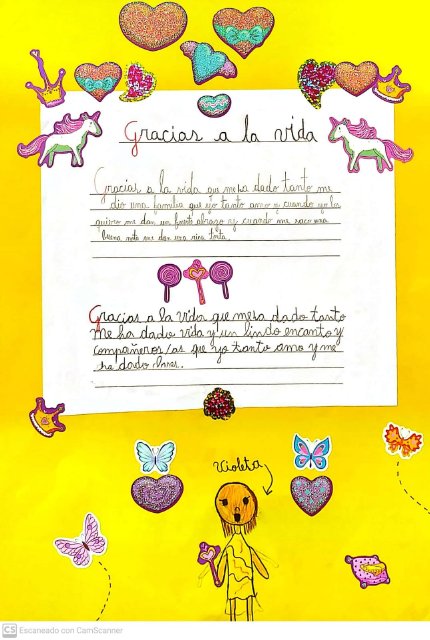 Gracias a la vida
Gracias a la vida que mesa dado tanto me
dio una familia que yo tanto amo y cuando yo los
quiero me dan un fuerte abrazo y cuando me saco una
buena nota me dan una rica torta.
Gracias a la vida que mesa dado tanto
Me ha dado vida y un lindo encanto y
compañeros/as que yo tanto amo y me
ha dado
Violeta
CS Escaneado con CamScanner